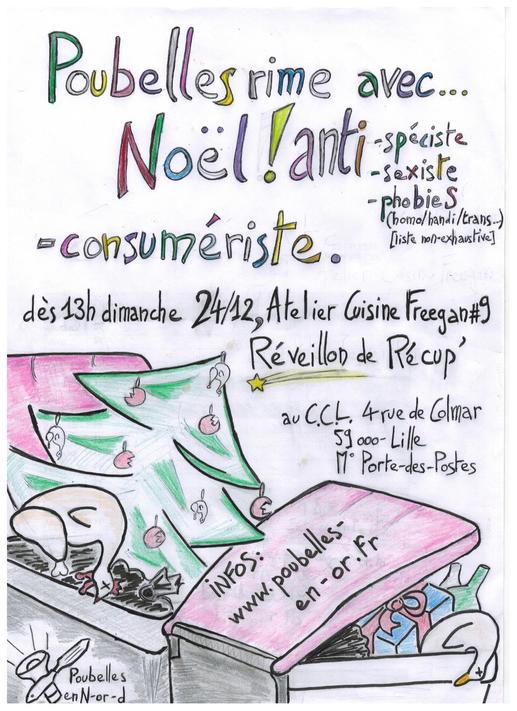 Poubelles rime avec...
Noël! anti-spéciste
-sexiste
-phobies
(homo/handi/trans...)
[liste non-exhaustive]
-consumériste.
dès 13h dimanche 24/12, Atelier Cuisine Freegan#9
Réveillon de Récup'
au C.C.L. 4 rue de Colmar
59000-Lille
M° Porte-des-Postes
iNFOS:
www.poubelles-
en-or.fr
Poubelles
en N-or-d